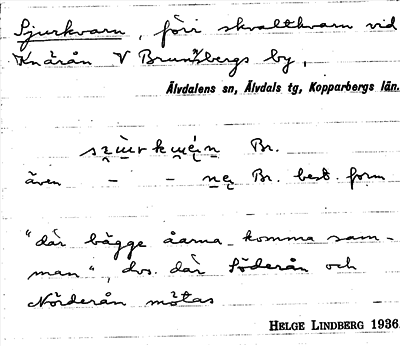 Sjurkvarn, förr skvaltkvarn vid
Knärån V Brunnsbergs by,
Älvdalens sn, Älvdals tg, Kopparbergs län.
Br.
även - - Br. best. form
"där bägge åarna komma sam-
man", dvs. där Söderån och
Nörderån mötas
HELGE LINDBERG 1936.